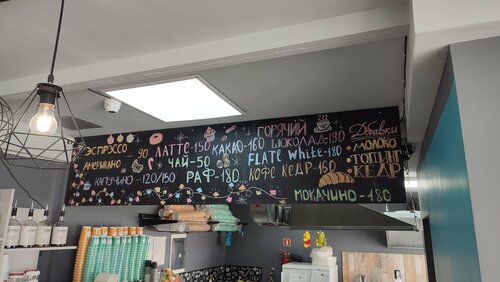 ЭСПРЕССО - 90
АМЕРИКАНО
КАПУЧИНО - 120/150
ЛАТТЕ-150
ЧАЙ-50
РАФ-180
КАКАО-160
ГОРЯЧИЙ
ШОКОЛАД-190
FLATE White-180
КОФЕ КЕДР-160
МОКАЧИНО-180
Добавки
МОЛОКО
ТОПИНГ
КЕДР